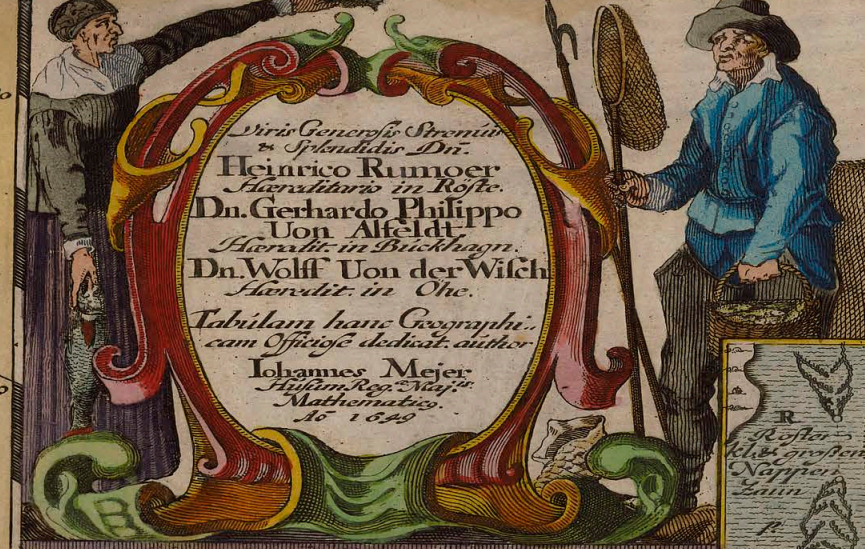 Viris Generosis Strenuis
& Splendidis Dn̄.
Heinrico Rumoer
Hæreditario in Röste.
Dn. Gerhardo Philippo
Uon Alfeldt
Hæredit. in Bùckhagn.
Dn. Wolff Uon der Wisch
Hæredit. in Ohe.
Tabùlam hanc Geographi..
cam Officiosè dedicat. author
Iohannes Mejer
Husùm Reg. Maj.
Mathematicq.
Aō 1649
R
Roster
kl. & grosen
Nappen
Zaun